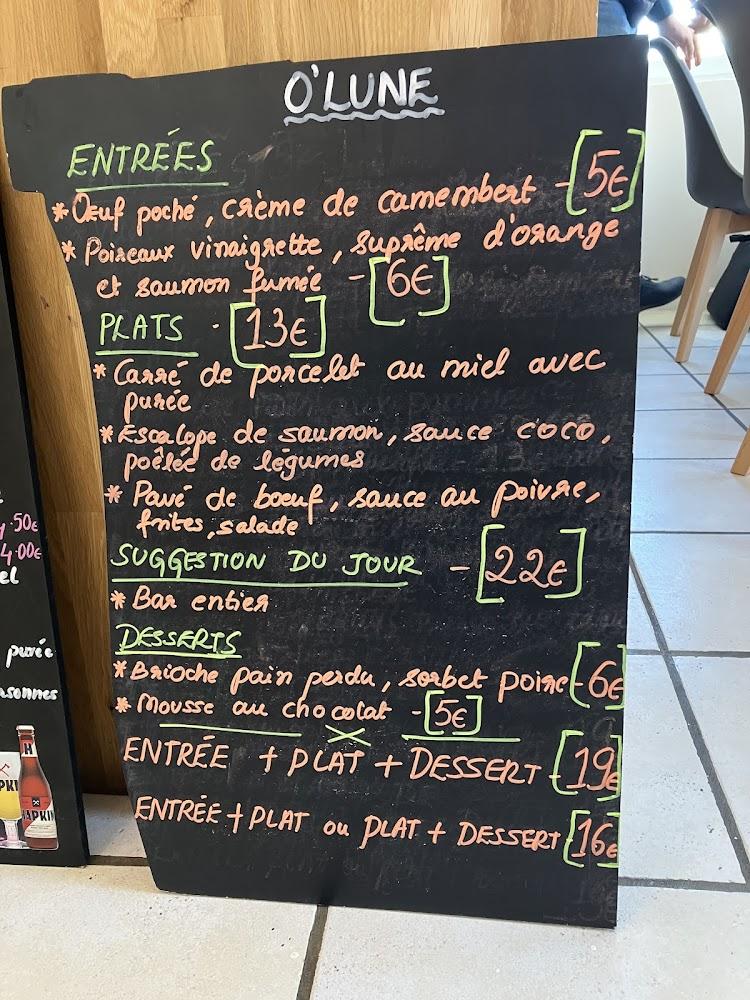 O'LUNE
ENTRÉES
* Œuf poché, crème de camembert - [5€]
* Poireaux vinaigrette, suprême d'orange
et saumon fumée - [6€]
PLATS - [13€]
* Carré de porcelet au miel avec
purée
* Escalope de saumon, sauce coco,
poêlée de légumes
* Pavé de boeuf, sauce au poivre,
frites, salade
SUGGESTION DU JOUR - [22€]
* Bar entier
DESSERTS
* Brioche pain perdu, sorbet poire - [6€]
* Mousse au chocolat - [5€]
ENTRÉE + PLAT + DESSERT - [19€]
ENTRÉE + PLAT ou PLAT + DESSERT - [16€]
50€
4.00€
el
purée
sonnes